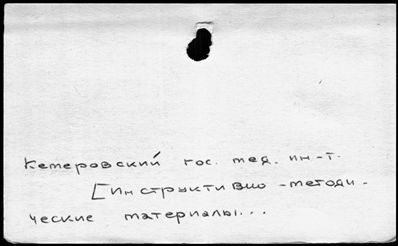 Кемеровский гос. мед. ин-т.
[Инструктивно-методи-
ческие материалы...